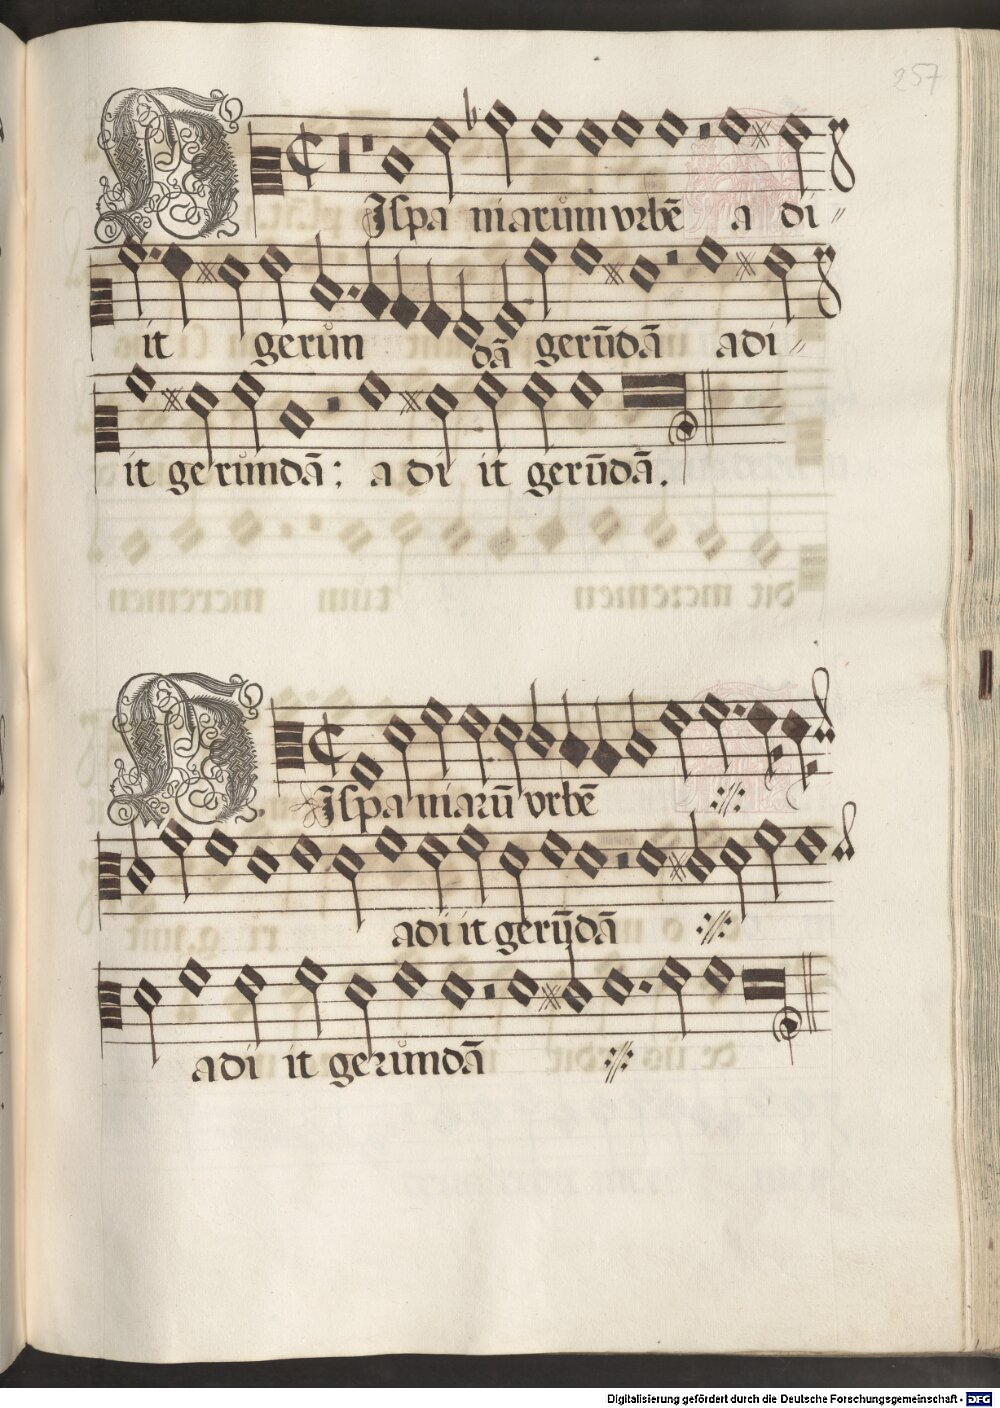 257
HIspa niarum vrbē a di〃
it gerun dā gerūdā adi〃
it gerundā: a di it gerūdā.
HIspaniarū vrbē ://:
adi it gerūdā ://:
adi it gerundā ://:
Digitalisierung gefördert durch die Deutsche Forschungsgemeinschaft - DFG